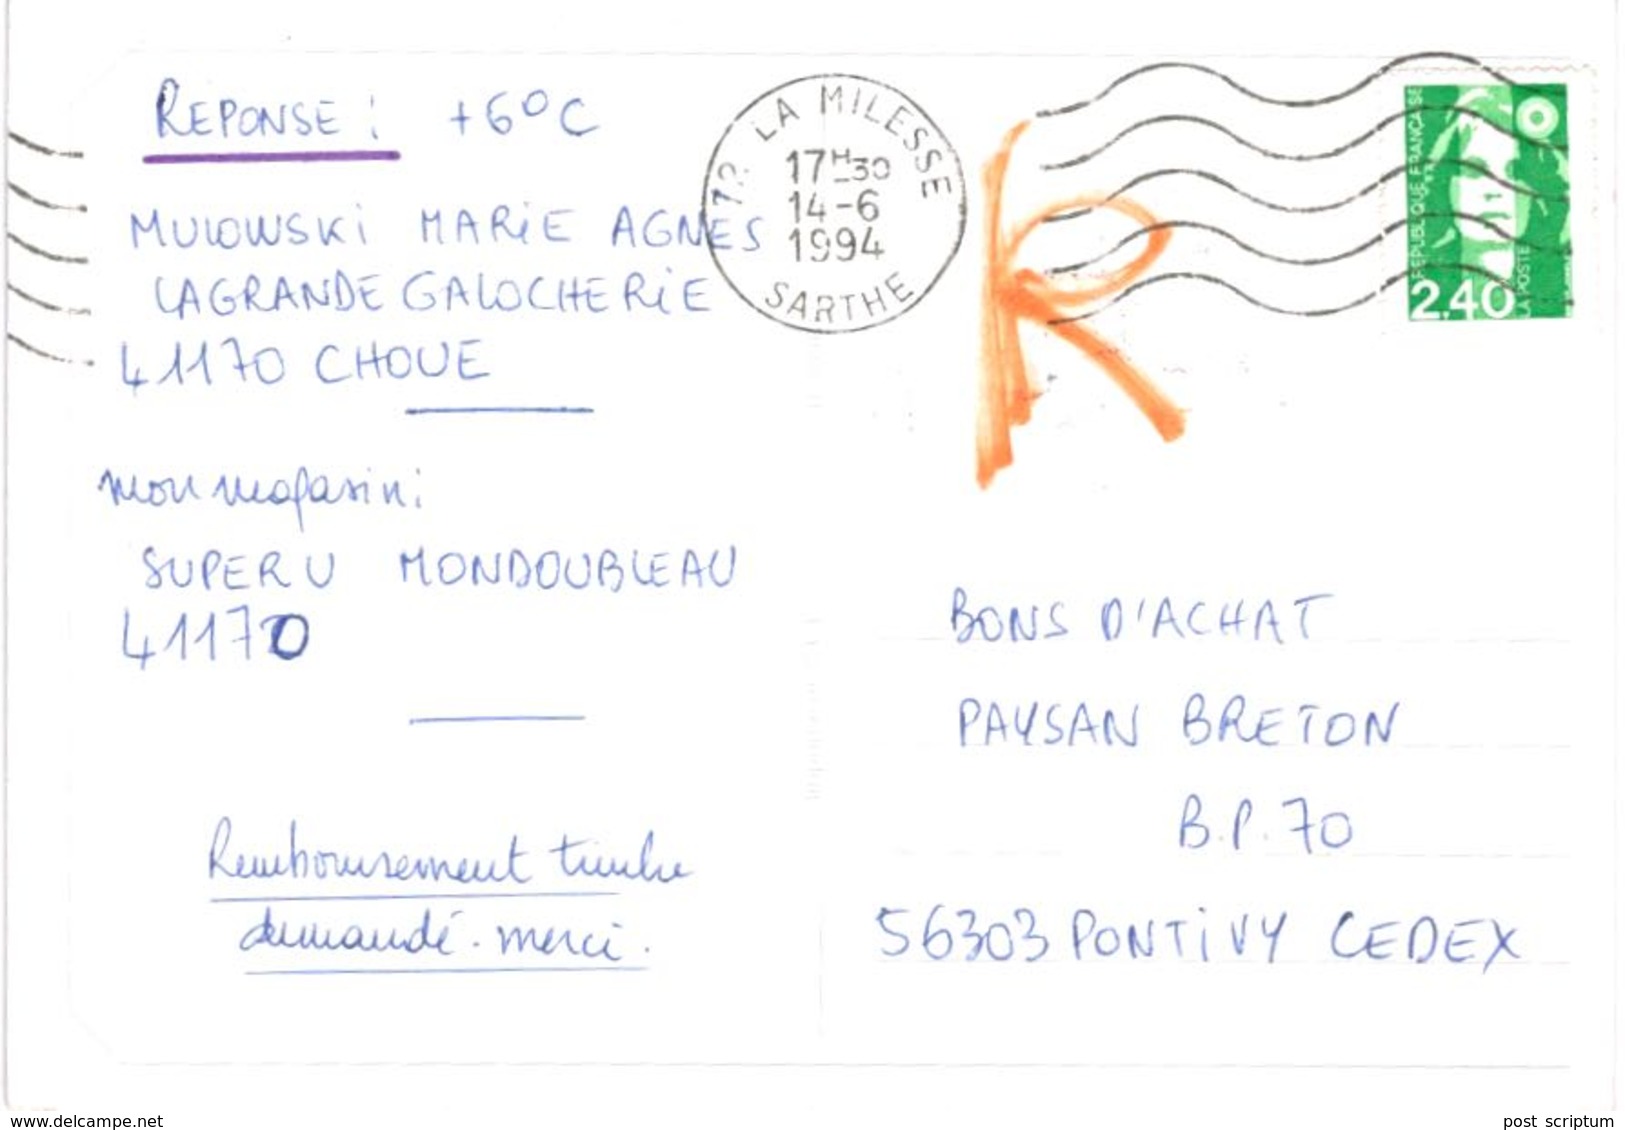 REPONSE : +6°C
MULOWSKI MARIE AGNES
LA GRANDE GALOCHERIE
41170 CHOUE
mon magasin :
SUPER U MONDOUBLEAU
41170
Remboursement timbre
demandé. merci.
72 LA MILESSE
17H30
14-6
1994
SARTHE
R
REPUBLIQUE FRANCAISE
2,40
LA POSTE
BONS D'ACHAT
PAYSAN BRETON
B.P. 70
56303 PONTIVY CEDEX
www.delcampe.net
post scriptum